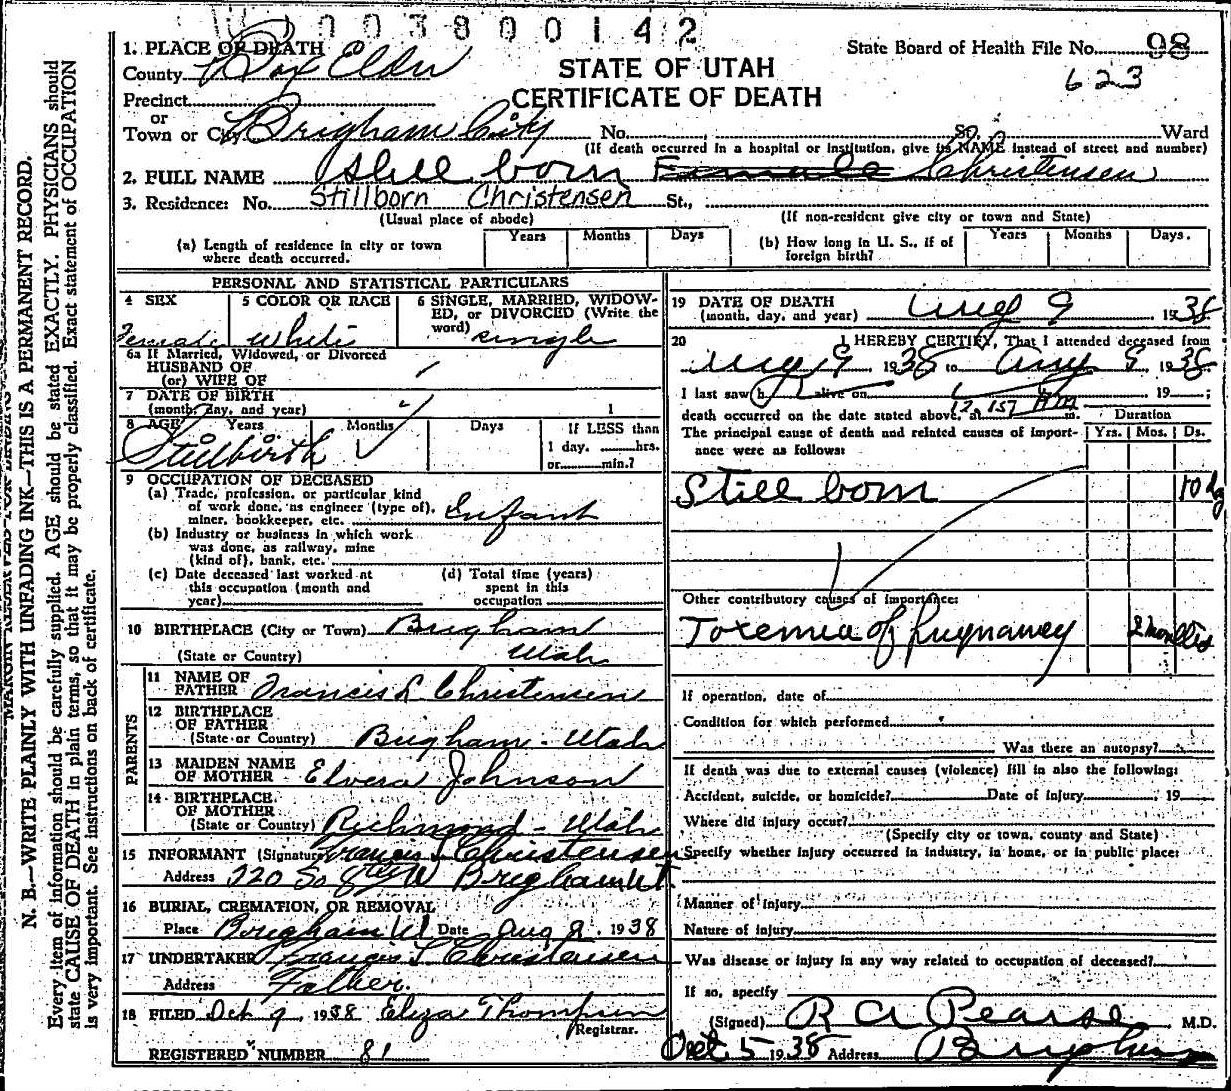 003800142
1. PLACE OF DEATH
State Board of Health File No. 98
County Box Elder
STATE OF UTAH
623
Precinct
CERTIFICATE OF DEATH
or
Town or City Brigham City No. , St., Ward
(If death occurred in a hospital or institution, give its NAME instead of street and number)
2. FULL NAME Still born Female Christensen
3. Residence: No. Stillborn Christensen St.,
(Usual place of abode) (If non-resident give city or town and State)
(a) Length of residence in city or town where death occurred. Years Months Days (b) How long in U. S., if of foreign birth? Years Months Days.
PERSONAL AND STATISTICAL PARTICULARS
4 SEX 5 COLOR OR RACE 6 SINGLE, MARRIED, WIDOW-
ED, or DIVORCED (Write the
word)
Female White single
6a If Married, Widowed, or Divorced
HUSBAND OF
(or) WIFE OF
7 DATE OF BIRTH
(month, day, and year)
8 AGE Years Months Days If LESS than
Stillbirth 1 day, hrs.
or min.?
9 OCCUPATION OF DECEASED
(a) Trade, profession, or particular kind
of work done, as engineer (type of),
miner, bookkeeper, etc. Infant
(b) Industry or business in which work
was done, as railway, mine
(kind of), bank, etc.
(c) Date deceased last worked at (d) Total time (years)
this occupation (month and spent in this
year) occupation
10 BIRTHPLACE (City or Town) Brigham
(State or Country) Utah
PARENTS
11 NAME OF
FATHER Francis L Christensen
12 BIRTHPLACE
OF FATHER
(State or Country) Brigham - Utah
13 MAIDEN NAME
OF MOTHER Elvera Johnson
14 BIRTHPLACE
OF MOTHER
(State or Country) Richmond - Utah
15 INFORMANT (Signature) Francis L Christensen
Address 320 So 8th W Brigham Ut.
16 BURIAL, CREMATION, OR REMOVAL
Place Brigham Ut Date Aug 9, 1938
17 UNDERTAKER Francis L Christensen
Address Father.
18 FILED Oct 9 1938 Eliza Thompson
Registrar.
REGISTERED NUMBER 81
19 DATE OF DEATH
(month, day, and year) Aug 9 1938
20 I HEREBY CERTIFY, That I attended deceased from
Aug 9 1938 to Aug 9 1938
I last saw h alive on 19 ;
death occurred on the date stated above, at 12.15 m.
Duration
The principal cause of death and related causes of import- Yrs. Mos. Ds.
ance were as follows:
Still born 10 dy
Other contributory causes of importance:
Toxemia of pregnancy 2 months
If operation, date of
Condition for which performed
Was there an autopsy?
If death was due to external causes (violence) fill in also the following:
Accident, suicide, or homicide? Date of injury , 19
Where did injury occur?
(Specify city or town, county and State)
Specify whether injury occurred in industry, in home, or in public place:
Manner of injury
Nature of injury
Was disease or injury in any way related to occupation of deceased?
If so, specify
(Signed) R A Pearse M.D.
Oct. 5 1938 Address Brigham
N. B.—WRITE PLAINLY WITH UNFADING INK—THIS IS A PERMANENT RECORD.
Every item of information should be carefully supplied. AGE should be stated EXACTLY. PHYSICIANS should
state CAUSE OF DEATH in plain terms, so that it may be properly classified. Exact statement of OCCUPATION
is very important. See instructions on back of certificate.
MARGIN RESERVED FOR BINDING